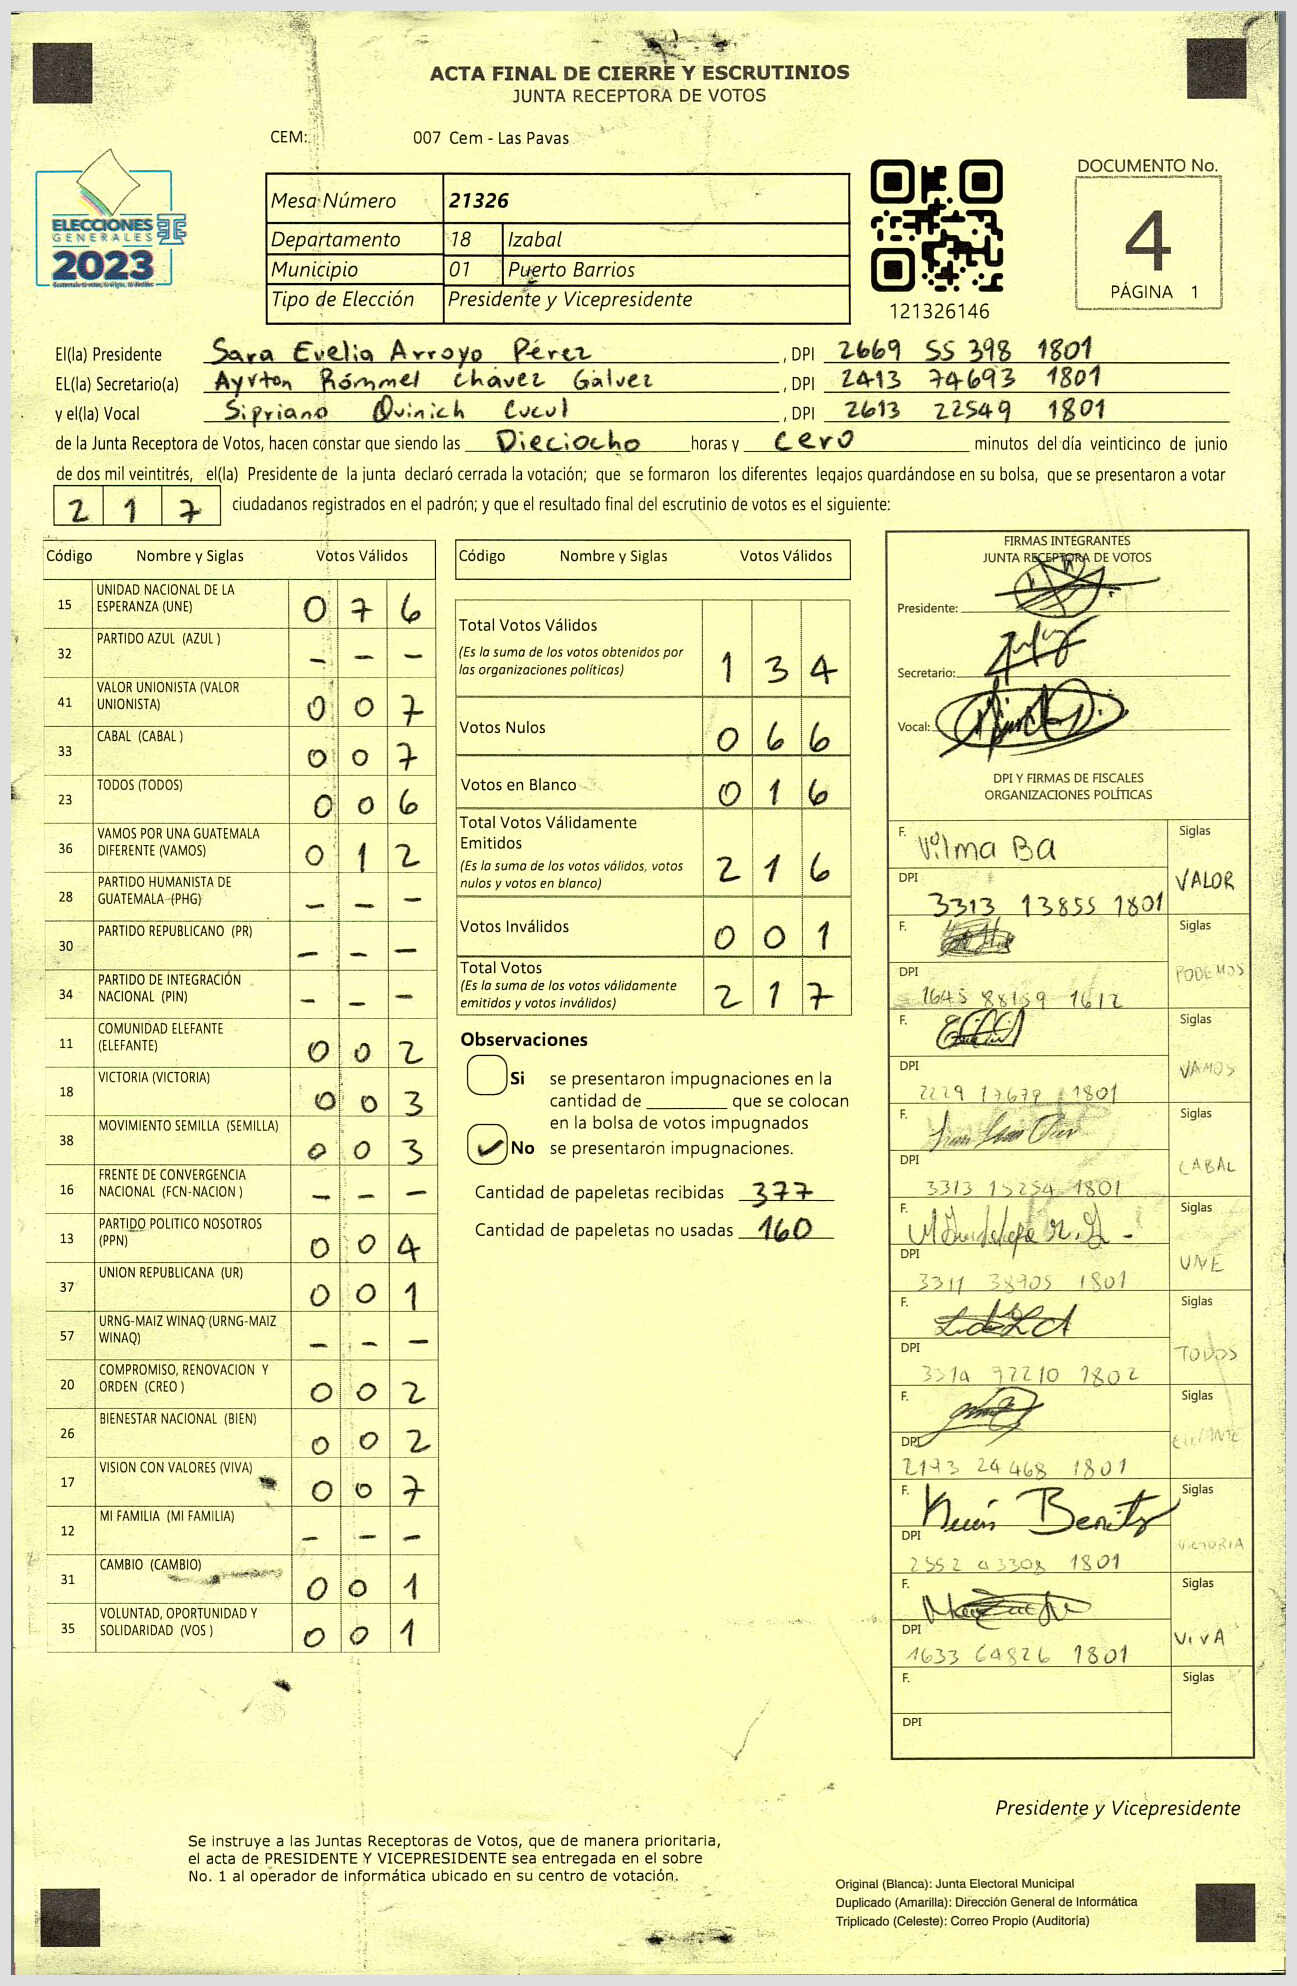 ACTA FINAL DE CIERRE Y ESCRUTINIOS
JUNTA RECEPTORA DE VOTOS
CEM: 007 Cem - Las Pavas
ELECCIONES
GENERALES
2023
Mesa Número 21326
Departamento 18 Izabal
Municipio 01 Puerto Barrios
Tipo de Elección Presidente y Vicepresidente
121326146
DOCUMENTO No.
4
PÁGINA 1
El(la) Presidente Sara Evelia Arroyo Pérez , DPI 2669 55398 1801
EL(la) Secretario(a) Ayrton Rómmel Chávez Gálvez , DPI 2413 74693 1801
y el(la) Vocal Sipriano Quinich Cucul , DPI 2613 22549 1801
de la Junta Receptora de Votos, hacen constar que siendo las Dieciocho horas y cero minutos del día veinticinco de junio
de dos mil veintitrés, el(la) Presidente de la junta declaró cerrada la votación; que se formaron los diferentes legajos guardándose en su bolsa, que se presentaron a votar
217 ciudadanos registrados en el padrón; y que el resultado final del escrutinio de votos es el siguiente:
Código Nombre y Siglas Votos Válidos
15 UNIDAD NACIONAL DE LA ESPERANZA (UNE) 076
32 PARTIDO AZUL (AZUL ) - - -
41 VALOR UNIONISTA (VALOR UNIONISTA) 007
33 CABAL (CABAL ) 007
23 TODOS (TODOS) 006
36 VAMOS POR UNA GUATEMALA DIFERENTE (VAMOS) 012
28 PARTIDO HUMANISTA DE GUATEMALA (PHG) - - -
30 PARTIDO REPUBLICANO (PR) - - -
34 PARTIDO DE INTEGRACIÓN NACIONAL (PIN) - - -
11 COMUNIDAD ELEFANTE (ELEFANTE) 002
18 VICTORIA (VICTORIA) 003
38 MOVIMIENTO SEMILLA (SEMILLA) 003
16 FRENTE DE CONVERGENCIA NACIONAL (FCN-NACION ) - - -
13 PARTIDO POLITICO NOSOTROS (PPN) 004
37 UNION REPUBLICANA (UR) 001
57 URNG-MAIZ WINAQ (URNG-MAIZ WINAQ) - - -
20 COMPROMISO, RENOVACION Y ORDEN (CREO ) 002
26 BIENESTAR NACIONAL (BIEN) 002
17 VISION CON VALORES (VIVA) 007
12 MI FAMILIA (MI FAMILIA) - - -
31 CAMBIO (CAMBIO) 001
35 VOLUNTAD, OPORTUNIDAD Y SOLIDARIDAD (VOS ) 001
Código Nombre y Siglas Votos Válidos
Total Votos Válidos 134
(Es la suma de los votos obtenidos por
las organizaciones políticas)
Votos Nulos 066
Votos en Blanco 016
Total Votos Válidamente
Emitidos 216
(Es la suma de los votos válidos, votos
nulos y votos en blanco)
Votos Inválidos 001
Total Votos 217
(Es la suma de los votos válidamente
emitidos y votos inválidos)
Observaciones
Si se presentaron impugnaciones en la
cantidad de ________ que se colocan
en la bolsa de votos impugnados
No se presentaron impugnaciones.
Cantidad de papeletas recibidas 377
Cantidad de papeletas no usadas 160
FIRMAS INTEGRANTES
JUNTA RECEPTORA DE VOTOS
Presidente:
Secretario:
Vocal:
DPI Y FIRMAS DE FISCALES
ORGANIZACIONES POLÍTICAS
F. Vilma Ba Siglas
DPI 3313 13855 1801 VALOR
F. Siglas
DPI 1645 88159 1612 PODEMOS
F. Siglas
DPI 2229 17679 1801 VAMOS
F. Siglas
DPI 3313 15254 1801 CABAL
F. Siglas
DPI 3311 38905 1801 UNE
F. Siglas
DPI 3314 92210 1802 TODOS
F. Siglas
DPI 2193 24468 1801 ELEFANTE
F. Kevin Benitez Siglas
DPI 2552 03308 1801 VICTORIA
F. Siglas
DPI 1633 64826 1801 VIVA
F. Siglas
DPI
Presidente y Vicepresidente
Se instruye a las Juntas Receptoras de Votos, que de manera prioritaria,
el acta de PRESIDENTE Y VICEPRESIDENTE sea entregada en el sobre
No. 1 al operador de informática ubicado en su centro de votación.
Original (Blanca): Junta Electoral Municipal
Duplicado (Amarilla): Dirección General de Informática
Triplicado (Celeste): Correo Propio (Auditoría)